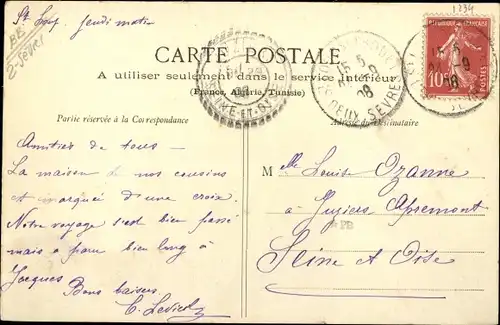 St Loup, jeudi matin
BE
2-Sèvres
1234
CARTE POSTALE
A utiliser seulement dans le service intérieur
(France, Algérie, Tunisie)
Partie réservée à la Correspondance
Adresse du Destinataire
Amitiés de tous —
La maison de nos cousins
est marquée d'une croix.
Notre voyage s'est bien passé
mais a paru bien long à
Jacques
Bons baisers
Mlle Louise Ozanne
à Juziers Apremont
Seine et Oise
REPUBLIQUE FRANÇAISE
10c
POSTES
15 5
-9
08
DEUX-SEVRES
SEINE-ET-OISE